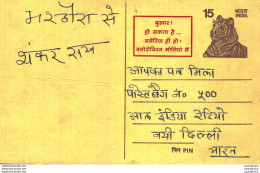 मरठौरा से
शंकर राय
बुखार!
हो सकता है...
मलेरिया ही हो!
क्लोरोक्विन गोलियां लें
15
भारत
INDIA
आपका पत्र मिला
पोस्ट बैग नं० ५००
आल इंडिया रेडियो
नयी दिल्ली
पिन PIN
भारत